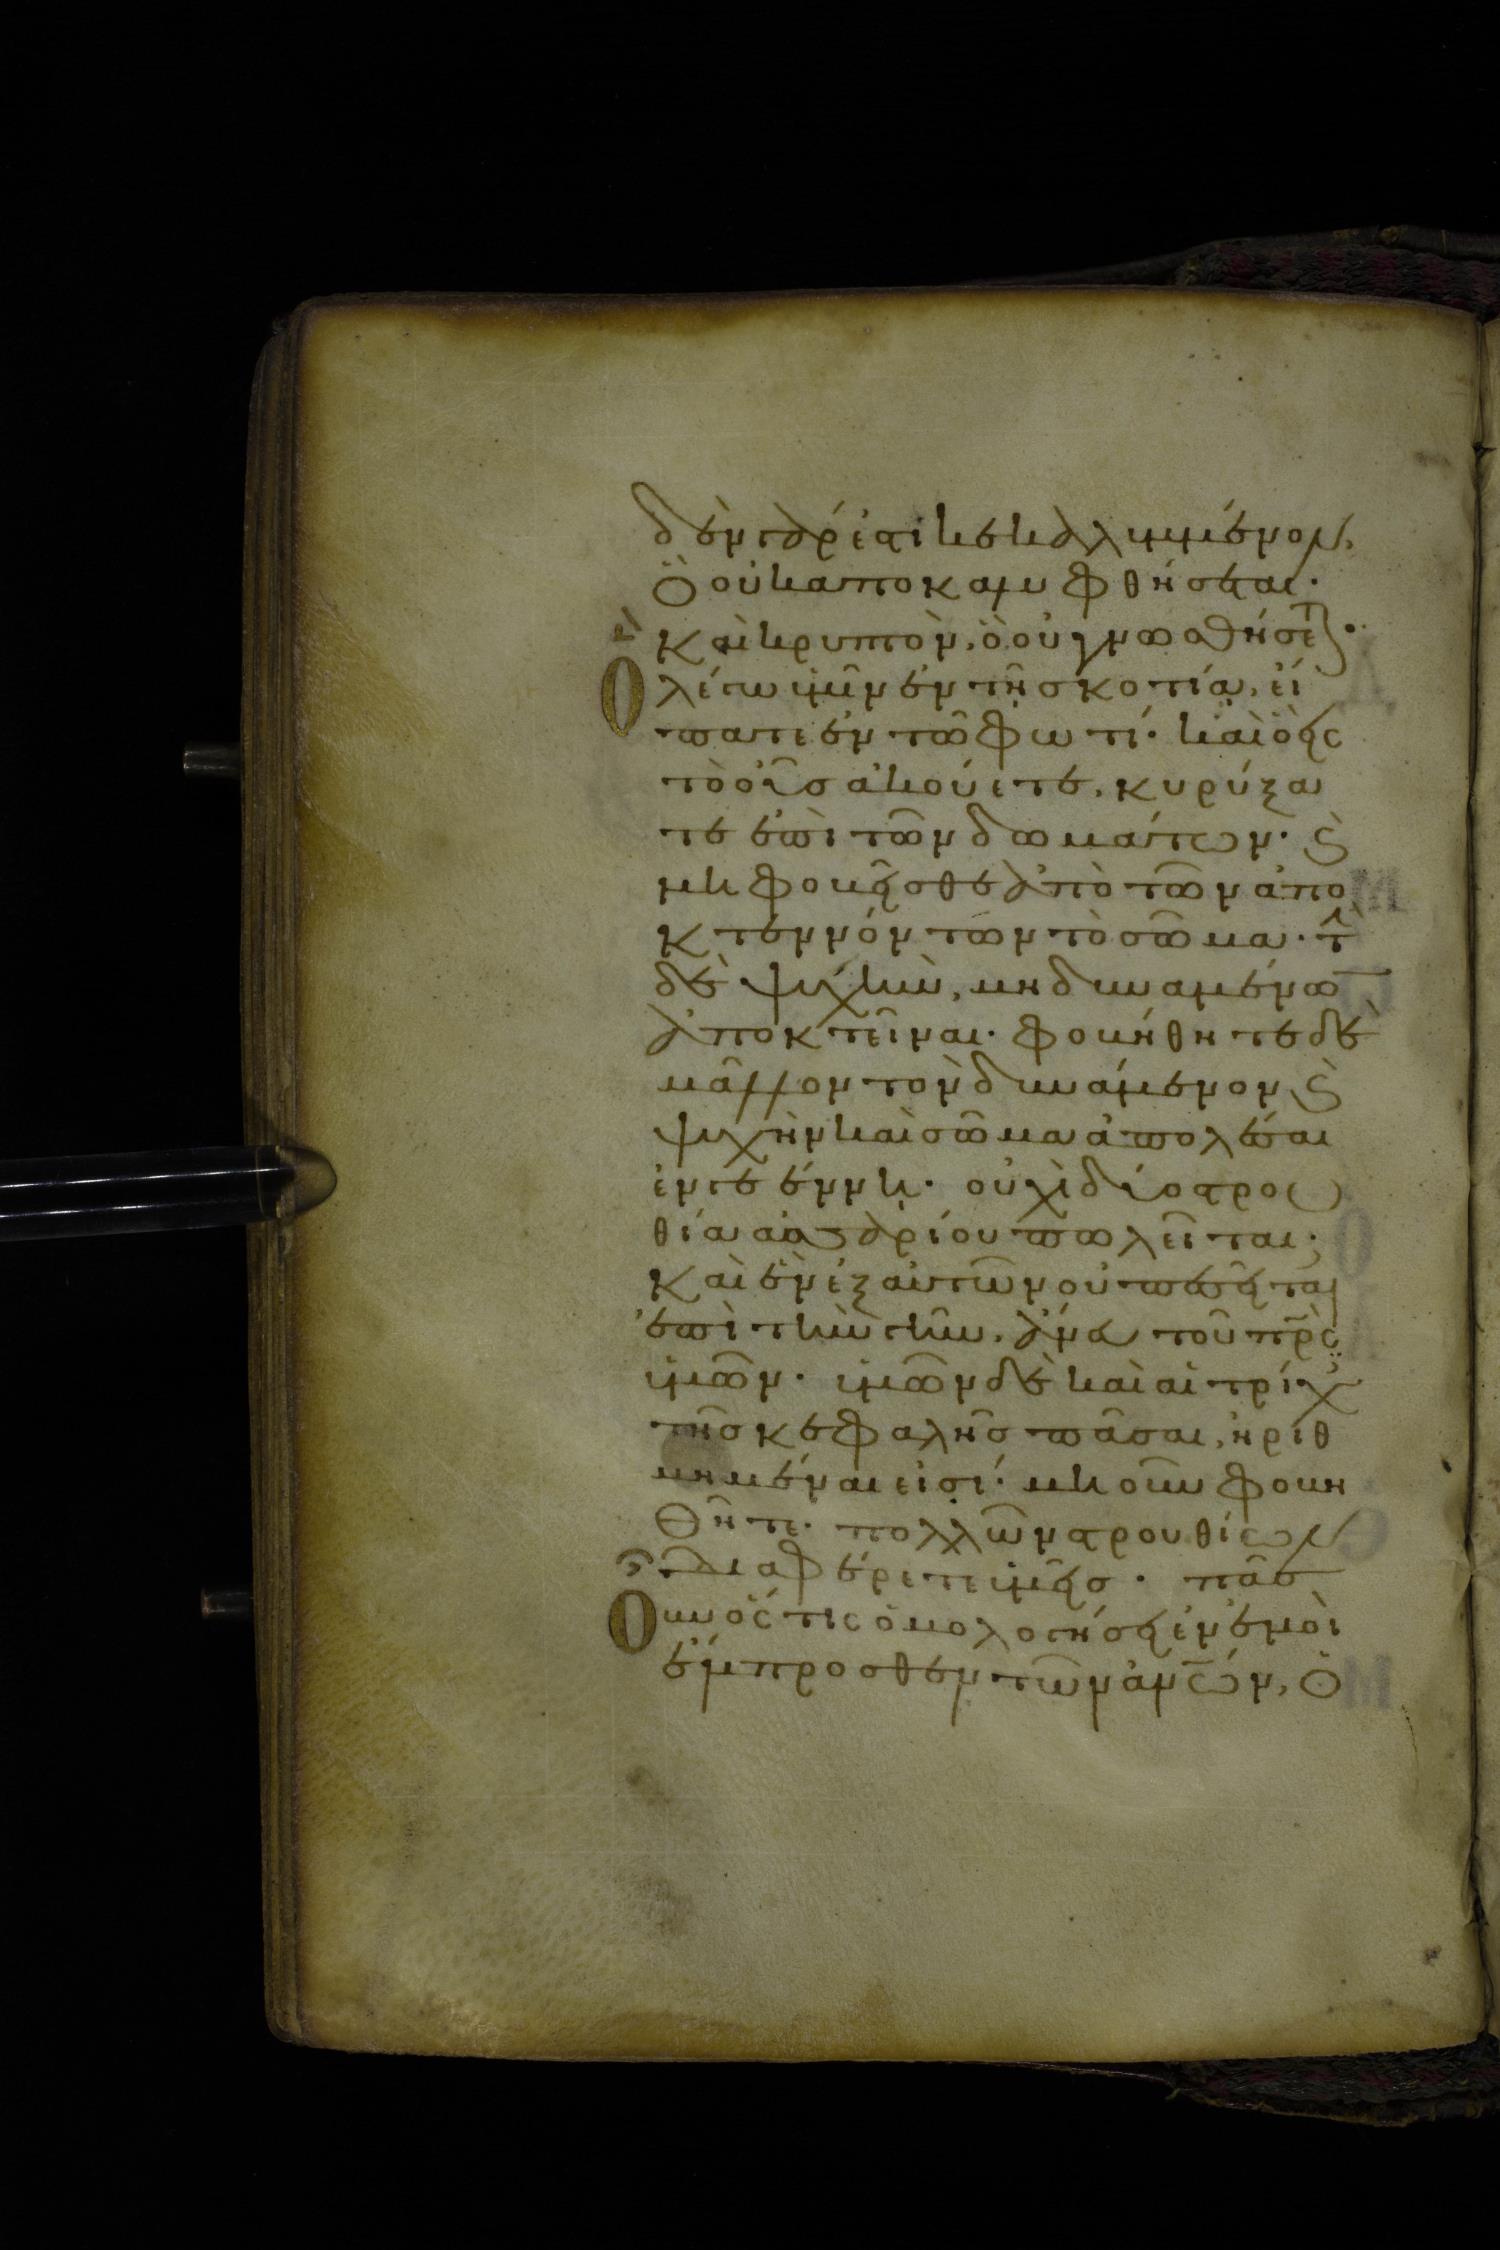 δὲν γάρ ἐστι κεκαλυμμένον,
ὃ οὐκ ἀποκαλυφθήσεται·
καὶ κρυπτὸν, ὃ οὐ γνωσθήσετ·
Ὃ λέγω ὑμῖν ἐν τῆ σκοτία, εἴ
πατε ἐν τῶ φωτί· καὶ ὃ εἰς
τὸ οὖς ἀκούετε, κηρύξα
τε ἐπὶ τῶν δωμάτων· ϗ
μὴ φοβεῖσθε ἀπὸ τῶν ἀπο
κτεννόντων τὸ σῶμα· τὴν
δὲ ψυχὴν, μὴ δυναμένω
ἀποκτεῖναι· φοβήθητε δὲ
μᾶλλον τὸν δυνάμενον ϗ
ψυχὴν καὶ σῶμα ἀπολέσαι
ἐν γεέννη· οὐχὶ δύο στρου
θία ἀσσαρίου πωλεῖται·
καὶ ἓν ἐξ αὐτῶν οὐ πεσεῖται
ἐπὶ τὴν γῆν, ἄνευ τοῦ πρς
ὑμῶν· ὑμῶν δὲ καὶ αἱ τρίχ
τῆς κεφαλῆς πᾶσαι, ἠριθ
μημέναι εἰσί· μὴ οὖν φοβη
θῆτε· πολλῶν στρουθίων
διαφέρετε ὑμεῖς· πᾶς
Οὖν ὅστις ὁμολογήσει ἐν ἐμοὶ
ἔμπροσθεν τῶν ἀνων, ὁ